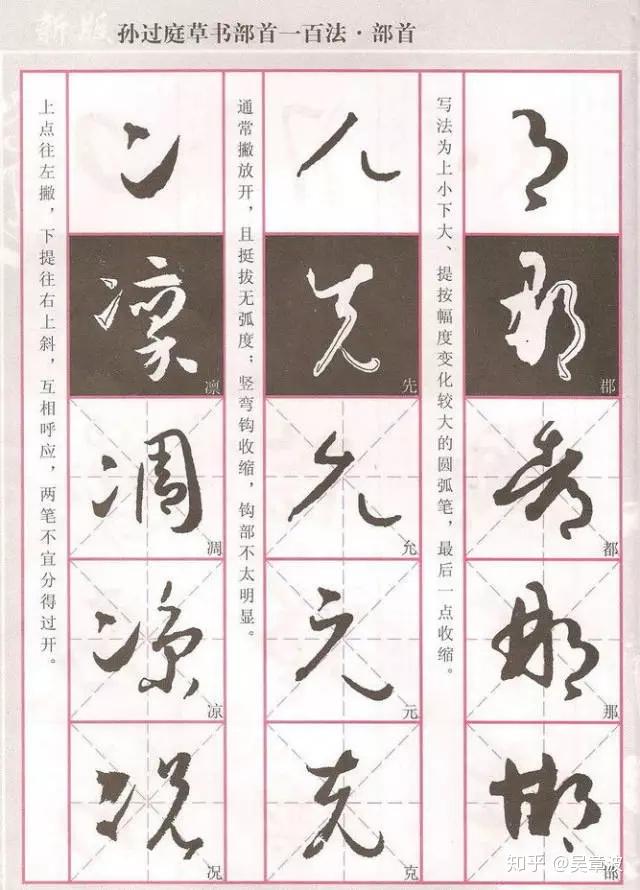 新版
孙过庭草书部首一百法·部首
写法为上小下大、提按幅度变化较大的圆弧笔，最后一点收缩。
阝
郡
郡
都
都
那
那
邯
通常撇放开，且挺拔无弧度；竖弯钩收缩，钩部不太明显。
儿
先
先
允
允
元
元
克
克
上点往左撇，下提往右上斜，互相呼应，两笔不宜分得过开。
冫
凛
凛
凋
凋
凉
凉
况
况
知乎 @吴章波